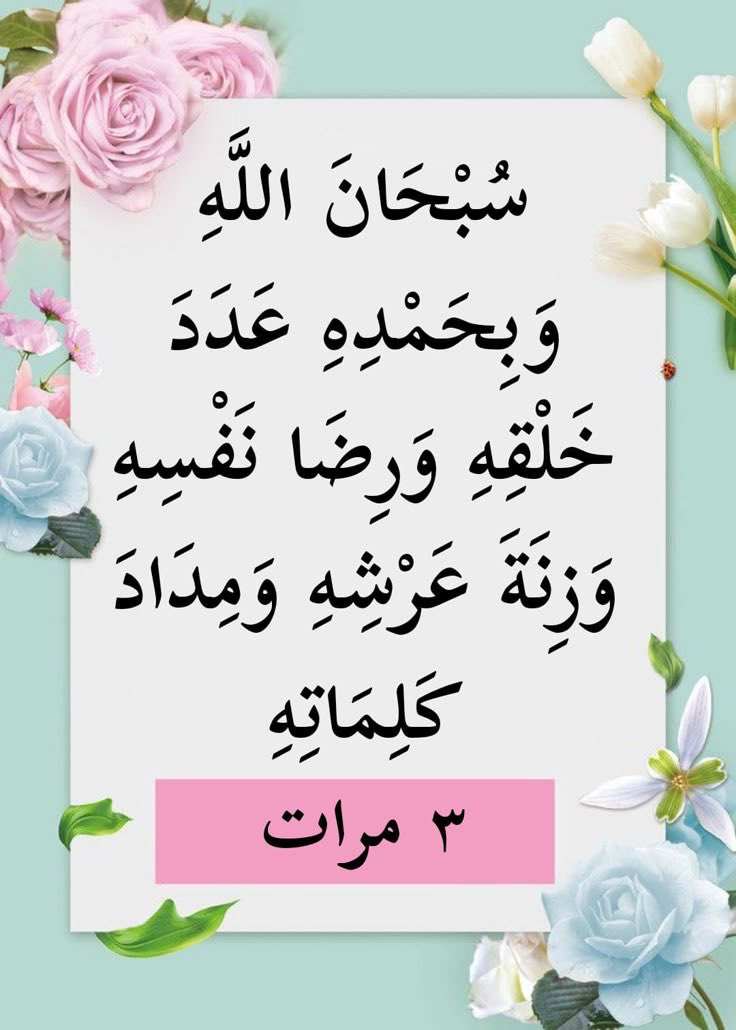 سُبْحَانَ اللَّهِ
وَبِحَمْدِهِ عَدَدَ
خَلْقِهِ وَرِضَا نَفْسِهِ
وَزِنَةَ عَرْشِهِ وَمِدَادَ
كَلِمَاتِهِ
٣ مرات